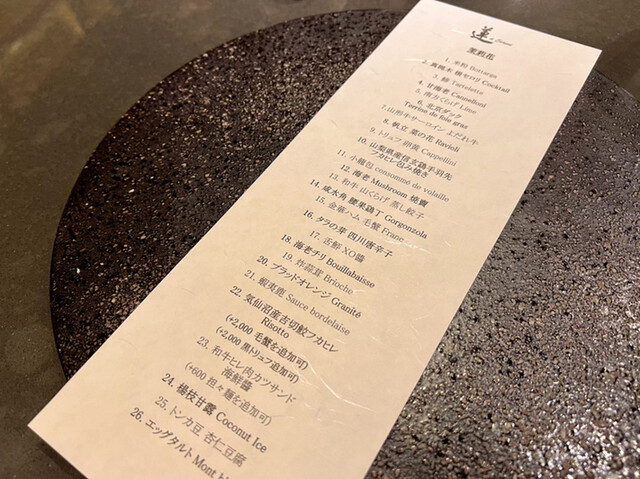 蓮
茉莉花
1. 米粉 Bottarga
Cocktail
3. 鯵 Tartelette
4. 甘海老 Cannelloni
5. 南方くらげ Lime
6. 北京ダック
Terrine de foie gras
7. 山形牛サーロイン よだれ牛
8. 帆立 菜の花 Ravioli
9. トリュフ 卵黄 Cappellini
10. 山梨県産信玄鶏手羽先
フカヒレ包み焼き
11. 小籠包 consommé de volaille
12. 海老 Mushroom 燒賣
13. 和牛 山くらげ 蒸し餃子
14. 咸水角 腰果鶏丁 Gorgonzola
15. 金華ハム 毛蟹 Franc
16. タラの芽 四川唐辛子
17. 舌鮃 XO醬
18. 海老チリ Bouillabaisse
19. 炸蒜茸 Brioche
20. ブラッドオレンジ Granité
21. 蝦夷鹿 Sauce bordelaise
22. 気仙沼産吉切鮫フカヒレ
Risotto
(+2,000 毛蟹を追加可)
(+2,000 黒トリュフ追加可)
23. 和牛ヒレ肉カツサンド
海鮮醬
(+600 担々麺を追加可)
24. 楊枝甘露 Coconut Ice
25. トンカ豆 杏仁豆腐
26. エッグタルト Mont